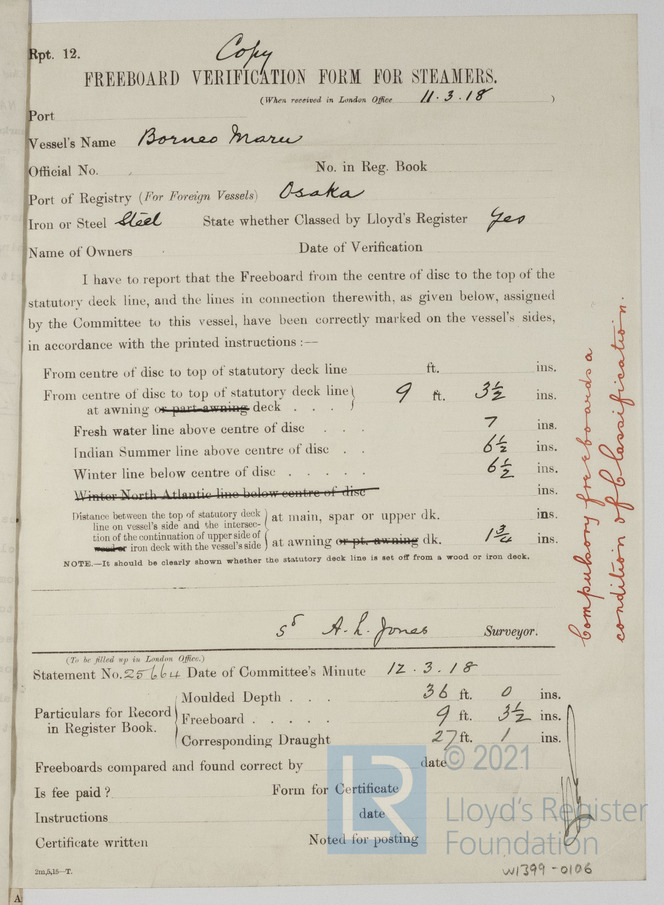 Rpt. 12.
Copy
FREEBOARD VERIFICATION FORM FOR STEAMERS.
(When received in London Office 11.3.18 )
Port
Vessel's Name Borneo Maru
Official No. No. in Reg. Book
Port of Registry (For Foreign Vessels) Osaka
Iron or Steel Steel State whether Classed by Lloyd's Register Yes
Name of Owners Date of Verification
I have to report that the Freeboard from the centre of disc to the top of the
statutory deck line, and the lines in connection therewith, as given below, assigned
by the Committee to this vessel, have been correctly marked on the vessel's sides,
in accordance with the printed instructions :—
From centre of disc to top of statutory deck line ft. ins.
From centre of disc to top of statutory deck line
at awning or part awning deck . . . 9 ft. 3½ ins.
Fresh water line above centre of disc . . . 7 ins.
Indian Summer line above centre of disc . . 6½ ins.
Winter line below centre of disc . . . . . 6½ ins.
Winter North Atlantic line below centre of disc ins.
Distance between the top of statutory deck
line on vessel's side and the intersec-
tion of the continuation of upper side of
wood or iron deck with the vessel's side
at main, spar or upper dk. ins.
at awning or pt. awning dk. 1¾ ins.
NOTE.—It should be clearly shown whether the statutory deck line is set off from a wood or iron deck.
sd A. L. Jones Surveyor.
(To be filled up in London Office.)
Statement No. 25664 Date of Committee's Minute 12.3.18
Particulars for Record
in Register Book.
Moulded Depth . . . 36 ft. 0 ins.
Freeboard . . . . . 9 ft. 3½ ins.
Corresponding Draught 27 ft. 1 ins.
Freeboards compared and found correct by date
Is fee paid ? Form for Certificate
Instructions date
Certificate written Noted for posting
2m,5,15—T.
Compulsory freeboards a
condition of Classification.
© 2021
LR
Lloyd's Register
Foundation
W1399-0106
A